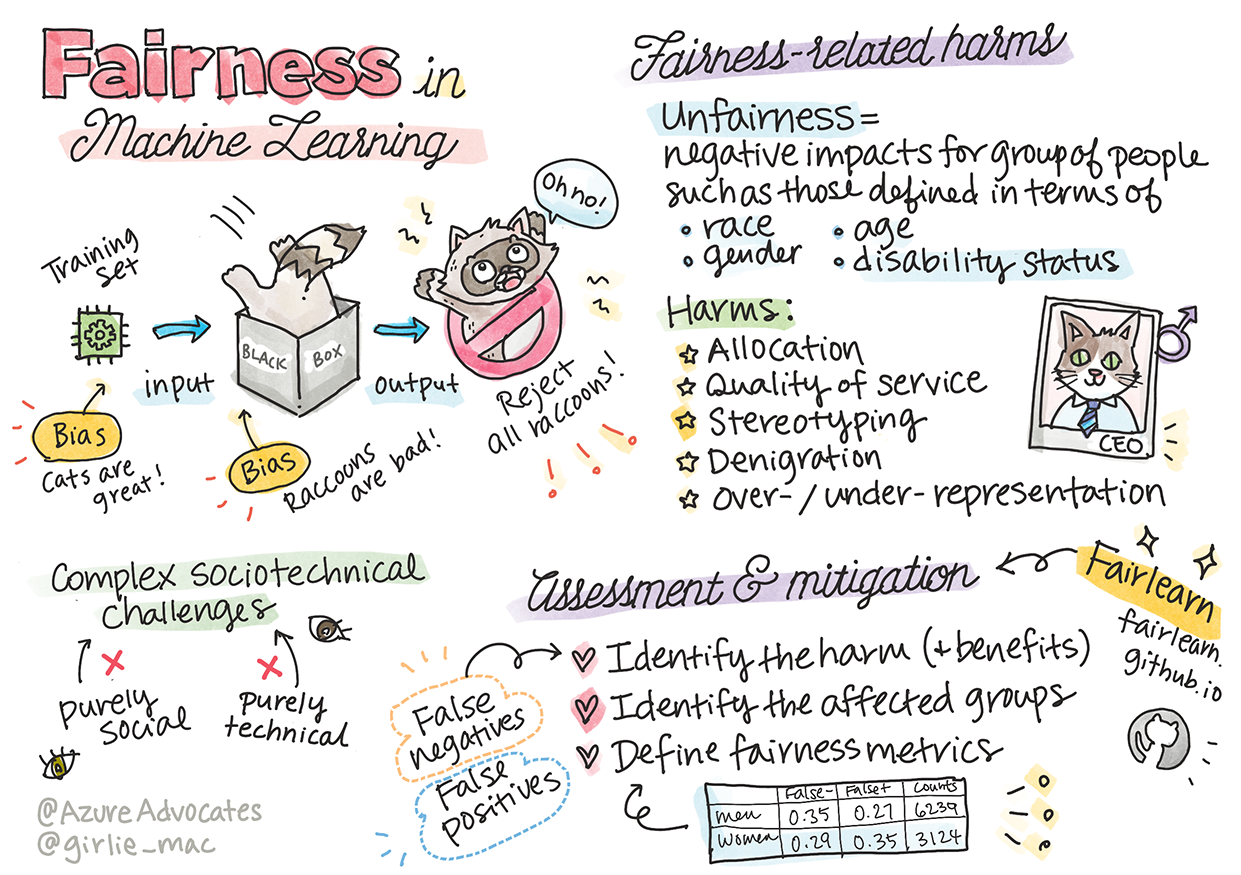 Fairness in
Machine Learning
Training
set
input
BLACK BOX
output
Oh no!
Reject
all raccoons!
Bias
Cats are
great!
Bias
Raccoons
are bad!
Fairness-related harms
Unfairness =
negative impacts for group of people
such as those defined in terms of
• race • age
• gender • disability status
Harms:
☆ Allocation
☆ Quality of service
☆ Stereotyping
☆ Denigration
☆ Over- / under- representation
CEO
Complex sociotechnical
challenges
purely
social
purely
technical
@AzureAdvocates
@girlie_mac
Assessment & mitigation
Fairlearn
fairlearn.
github.io
Identify the harm (+ benefits)
Identify the affected groups
Define fairness metrics
False
negatives
False
positives
False- False+ Counts
men 0.35 0.27 6239
Women 0.29 0.35 3124